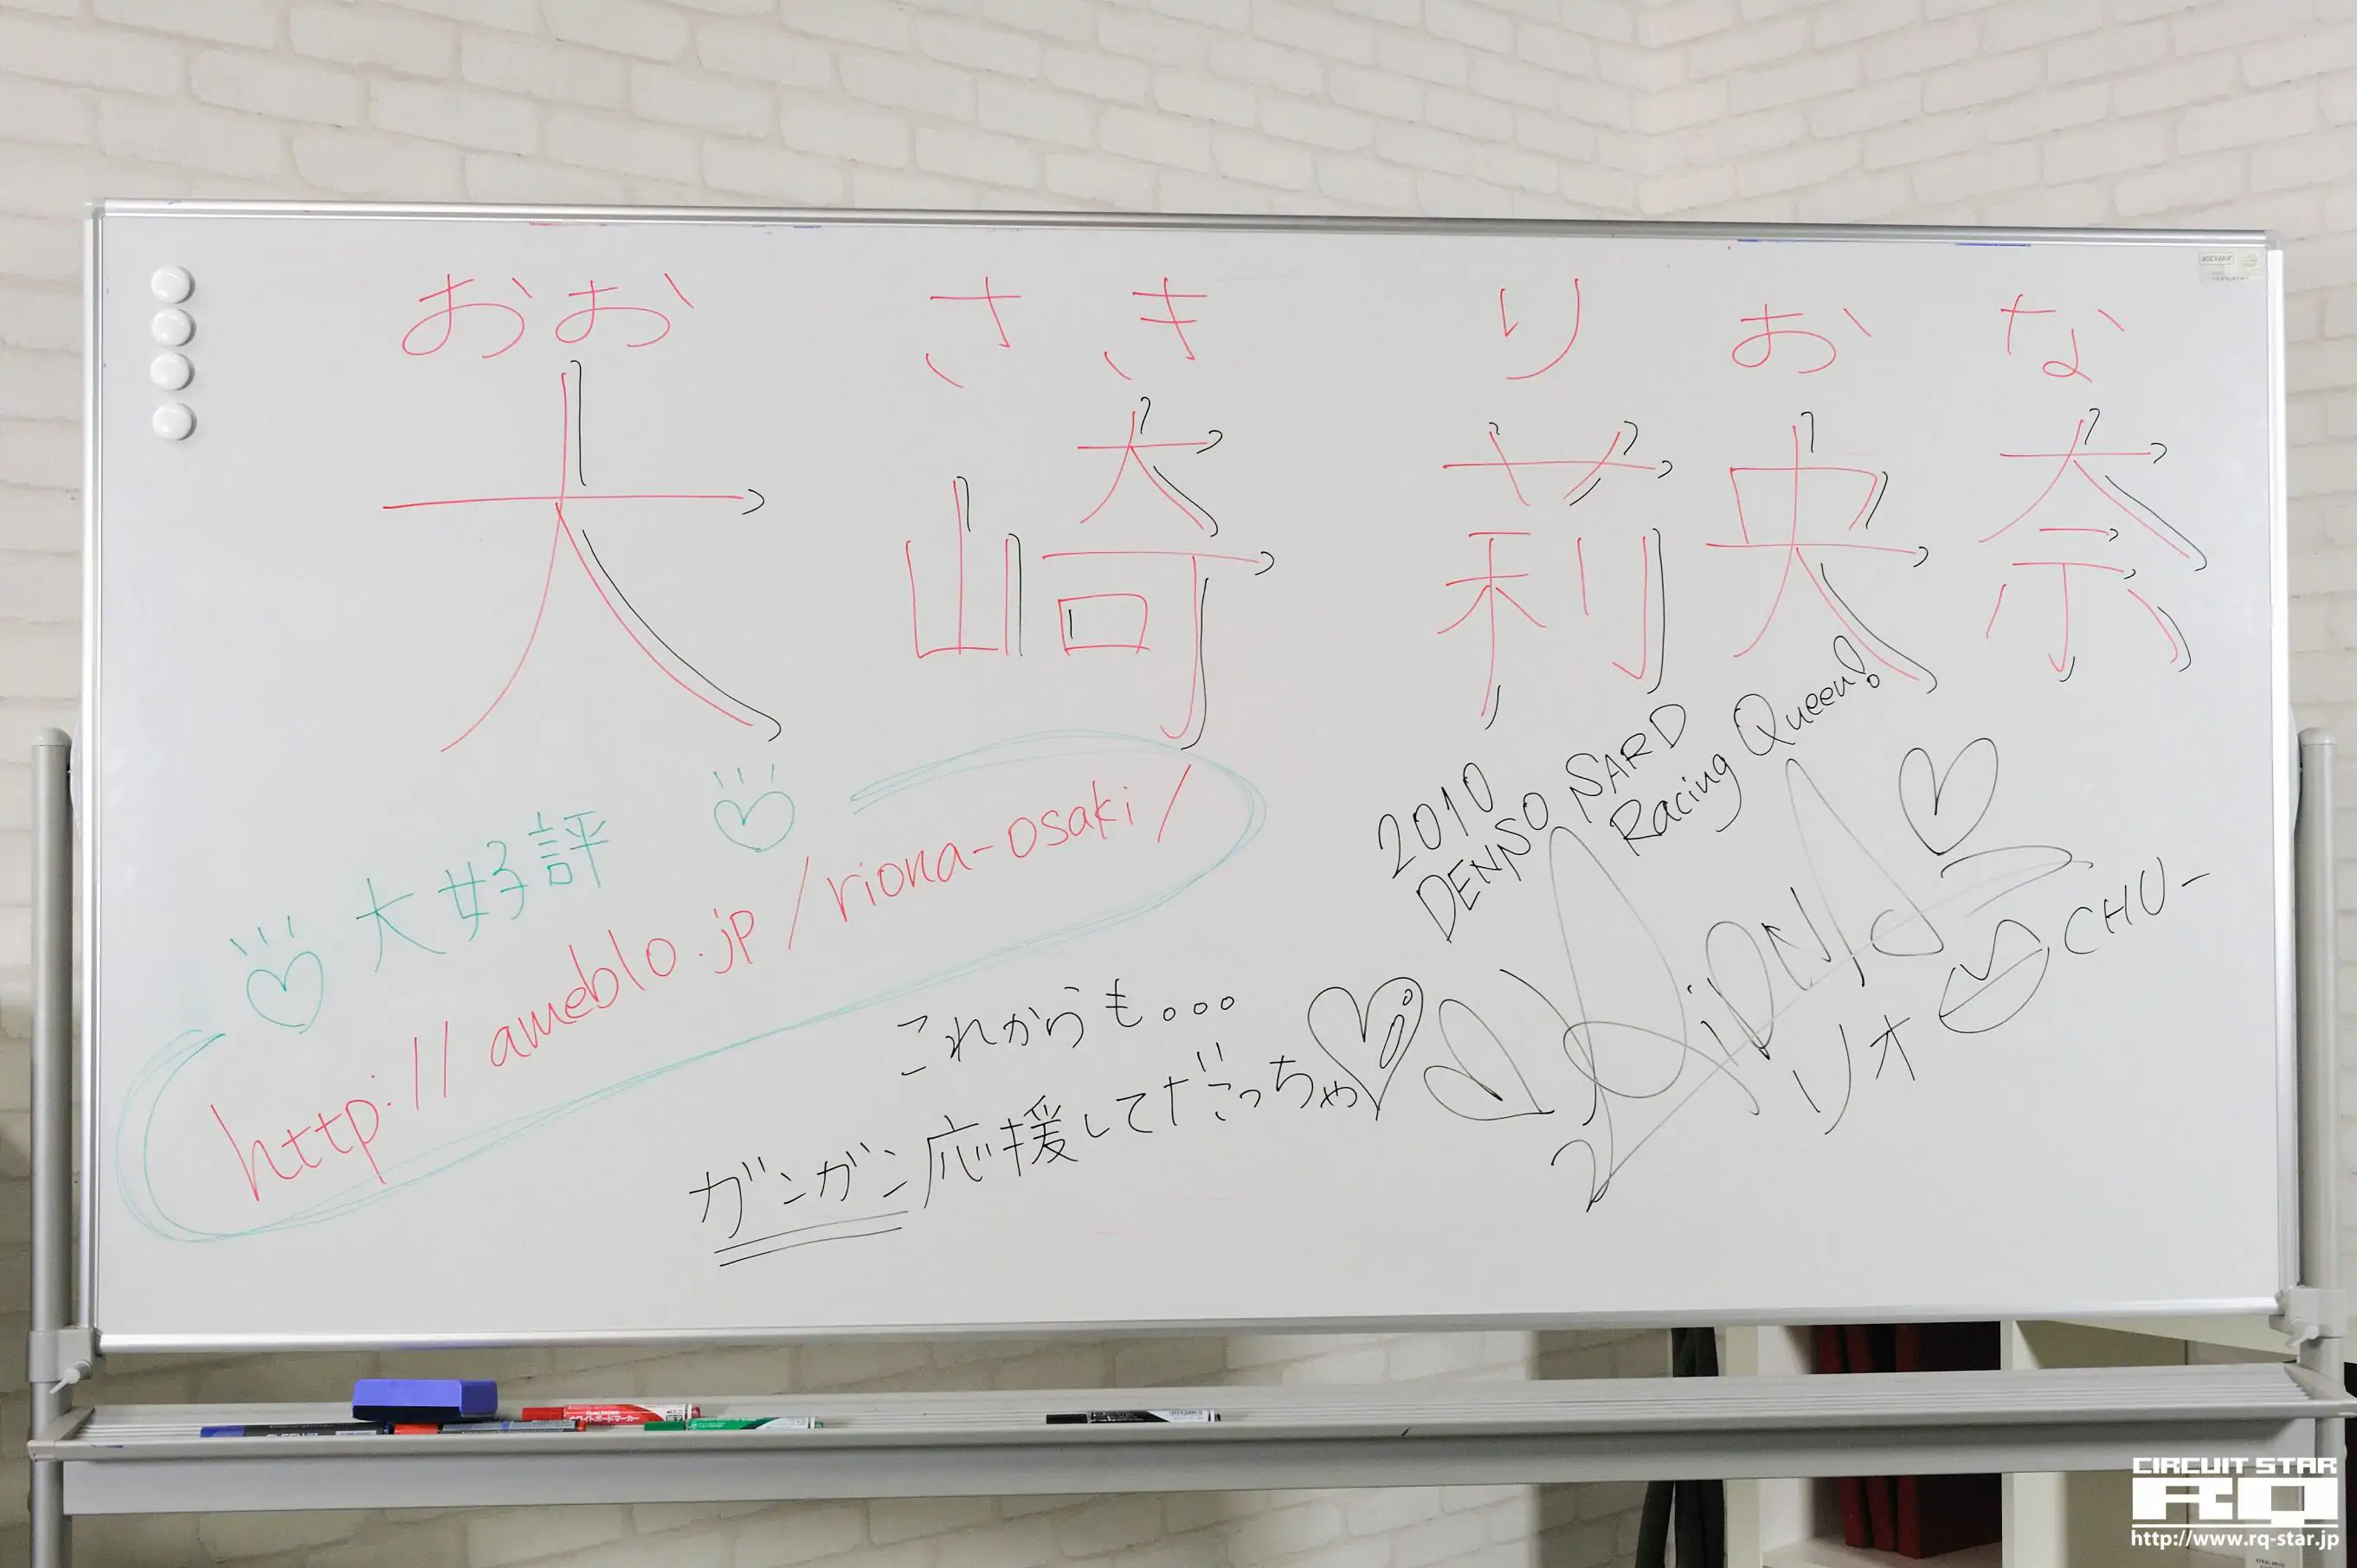 おお さき りおな
大 崎 莉 央 奈
大好評
http://ameblo.jp/riona-osaki/
2010
DENSO SARD
Racing Queen!
RiONA
リオ CHU-
これからも。。。
ガンガン応援してだっちゃ
ホワイトボードマーカー
CIRCUIT STAR
RQ
http://www.rq-star.jp